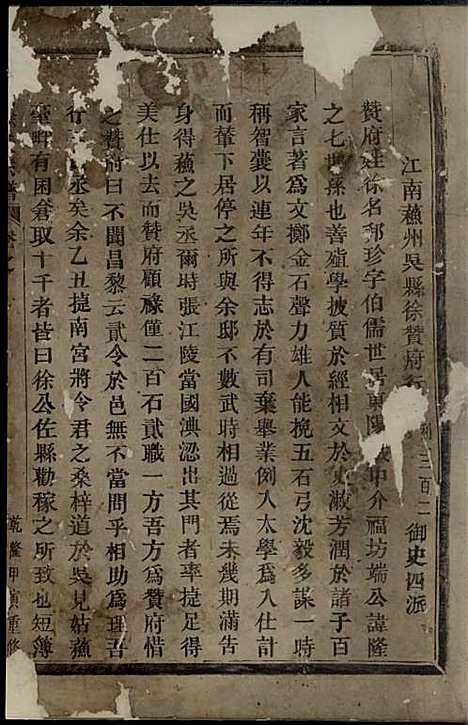 江南蘇州吳縣徐贊府行 列三百二 御史四派
贊府姓徐名邦珍字伯儒世居東陽城中介福坊端公諱隆
之七世孫也善殖學披質於經相文於史漱芳潤於諸子百
家言著為文擲金石聲力雄人能挽五石弓沈毅多謀一時
稱智囊以連年不得志於有司棄舉業例入太學為入仕計
而輦下居停之所與余邸不數武時相過從焉未幾期滿告
身得蘇之吳丞爾時張江陵當國澳涊出其門者率捷足得
美仕以去而贊府顧祿僅二百石貳職一方吾方為贊府惜
之贊府曰不聞昌黎云貳令於邑無不當問乎相助為理吾
行 丞矣余乙丑捷南宮將令君之桑梓道於吳見姑蘇
畿畔有困倉取十千者皆曰徐公佐縣勸稼之所致也短簿
乾隆甲寅重修